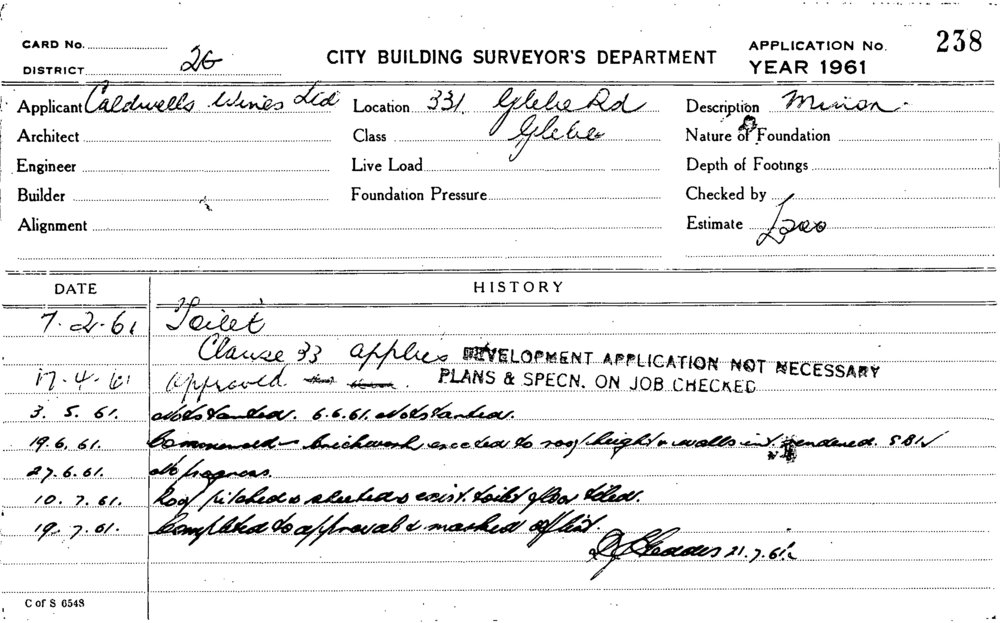 CARD No.
DISTRICT 26
CITY BUILDING SURVEYOR'S DEPARTMENT
APPLICATION No. 238
YEAR 1961
Applicant Caldwells Wines Ltd
Location 331 Glebe Rd
Description Minor
Architect
Class Glebe
Nature of Foundation
Engineer
Live Load
Depth of Footings
Builder
Foundation Pressure
Checked by
Alignment
Estimate £200
DATE HISTORY
7.2.61 Toilet
Clause 33 applies DEVELOPMENT APPLICATION NOT NECESSARY
17.4.61 approved PLANS & SPECN. ON JOB CHECKED
3.5.61. Not started. 6.6.61. Not started.
19.6.61. Commenced - brickwork erected to roof height & walls int. rendered.
27.6.61. No progress.
10.7.61. Roof pitched & sheeted & exist. toilet floor tiled.
19.7.61. Completed to approval & marked off list.
21.7.61
C of S 6548